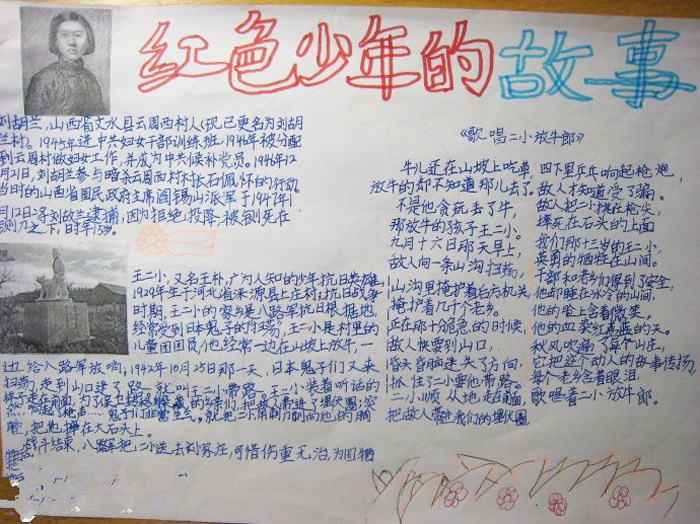 红色少年的故事
刘胡兰,山西省文水县云周西村人(现已更名为刘胡
兰村。1945年进中共妇女干部训练班,1946年被分配
到云周村做妇女工作,并成为中共候补党员。1946年12
月21日,刘胡兰参与暗杀云周西村村长石佩怀的行动。
当时的山西省国民政府主席阎锡山派军于1947年1
月12日将刘故兰逮捕,因为拒绝投降,被铡死在
铡刀之下,时年15岁。
王二小,又名王朴,广为人知的少年抗日英雄,
1929年生于河北省涞源县上庄村;抗日战争
时期,王二小的家乡是八路军抗日根据地,
经常受到日本鬼子的扫荡,王二小是村里的
儿童团团员,他经常一边在山坡上放牛,一
边给八路军放哨,1942年10月25日那一天,日本鬼子们又来
扫荡,走到山口迷了路。就叫王二小带路。王二小装着听话的
样子走在前面,为了保卫 的乡亲们,把敌人带进了埋伏圈,突
然,响起了枪声
膛,把他摔在大石头上。
战斗结束,八路军把二小送去刘家庄,可惜伤重无治,为国牺
《歌唱二小放牛郎》
牛儿还在山坡上吃草,
放牛的却不知道那儿去了,
不是他贪玩丢了牛,
那放牛的孩子王二小。
九月十六日那天早上,
敌人向一条山沟扫荡,
山沟里掩护着后方机关,
掩护着几千老乡。
正在那十分危急的时候,
敌人快要到山口,
昏头昏脑迷失了方向,
抓住了二小要他带路。
二小顺从地走在前面,
把敌人带进我们的埋伏圈,
四下里乒乓响起枪炮,
敌人才知道受了骗。
敌人把二小挑在枪尖,
摔死在石头的上面
我们那十三岁的王二小,
英勇的牺牲在山间。
干部和老乡们得到了安全,
他却睡在冰冷的山间,
他的脸上含着微笑,
他的血染红蓝蓝的天。
秋风吹遍了每个山庄,
它把这个动人的故事传扬,
每个老乡含着眼泪,
歌唱着二小放牛郎。